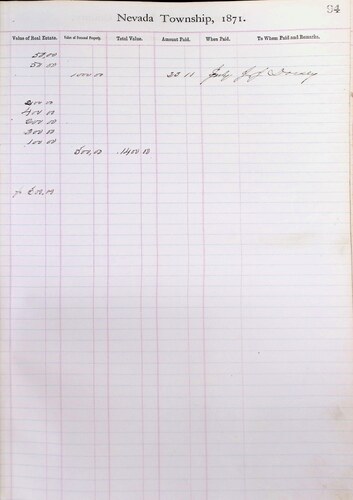 94
Nevada Township, 1871.
Value of Real Estate. Value of Personal Property. Total Value. Amount Paid. When Paid. To Whom Paid and Remarks.
50.00
50 00
1000 00 22 11 July
200 00
400 00
200 00
100 00
500.00 1400 00